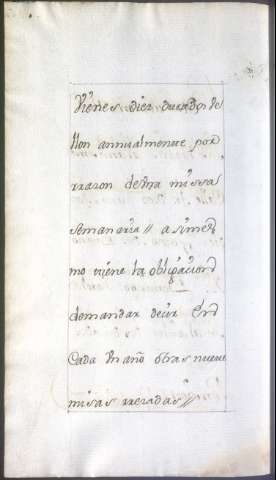 Vienes diez ducados de
llon annualmente por
rrazon de Vna missa
semanaria // asimed
mo viene la obligacion d
demandar decir End
Cada Vn año otras nueve
misas rrezadas //